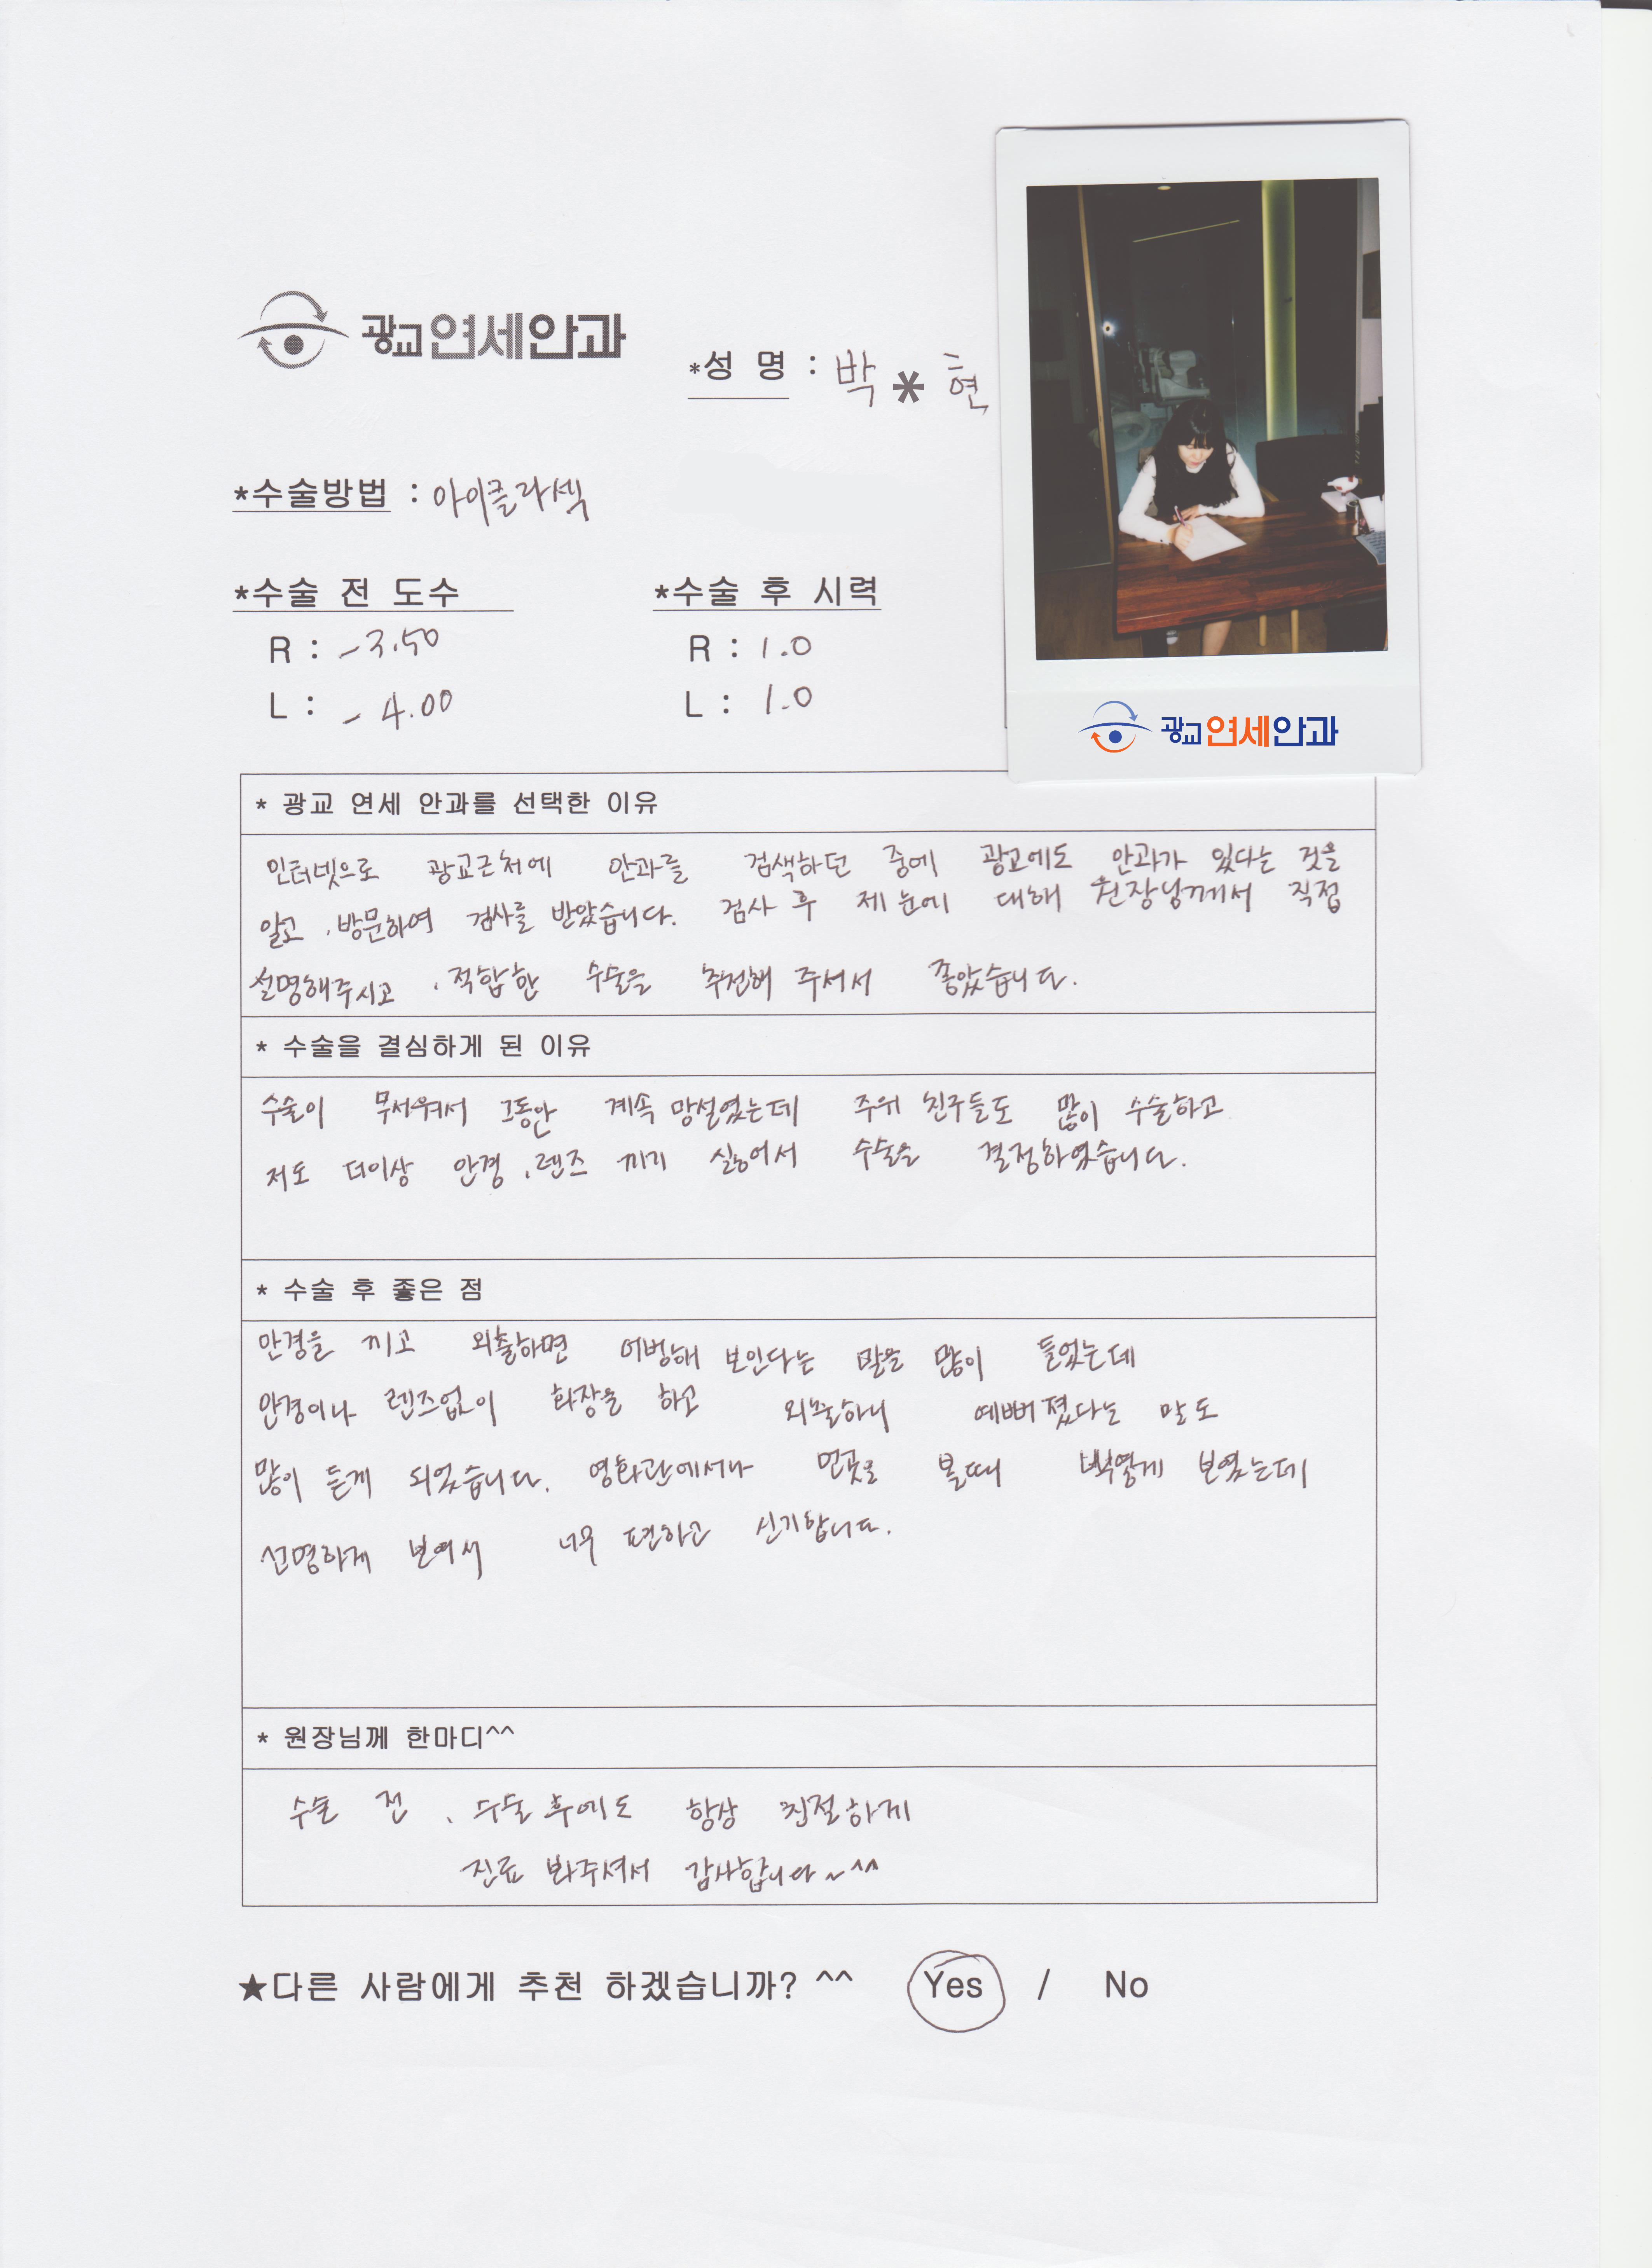 광교연세안과
*성 명 : 박 * 현
*수술방법 : 아이클라섹
*수술 전 도수
R : -3.50
L : -4.00
*수술 후 시력
R : 1.0
L : 1.0
광교연세안과
* 광교 연세 안과를 선택한 이유
인터넷으로 광교근처에 안과를 검색하던 중에 광교에도 안과가 있다는 것을
알고, 방문하여 검사를 받았습니다. 검사 후 제 눈에 대해 원장님께서 직접
설명해주시고, 적합한 수술을 추천해 주셔서 좋았습니다.
* 수술을 결심하게 된 이유
수술이 무서워서 그동안 계속 망설였는데 주위 친구들도 많이 수술하고
저도 더이상 안경, 렌즈 끼기 싫어서 수술을 결정하였습니다.
* 수술 후 좋은 점
안경을 끼고 외출하면 어벙해 보인다는 말을 많이 들었는데
안경이나 렌즈없이 화장을 하고 외출하니 예뻐졌다는 말도
많이 듣게 되었습니다. 영화관에서나 먼곳을 볼때 뿌옇게 보였는데
선명하게 보여서 너무 편하고 신기합니다.
* 원장님께 한마디^^
수술 전, 수술후에도 항상 친절하게
진료 봐주셔서 감사합니다~^^
★다른 사람에게 추천 하겠습니까? ^^ Yes / No